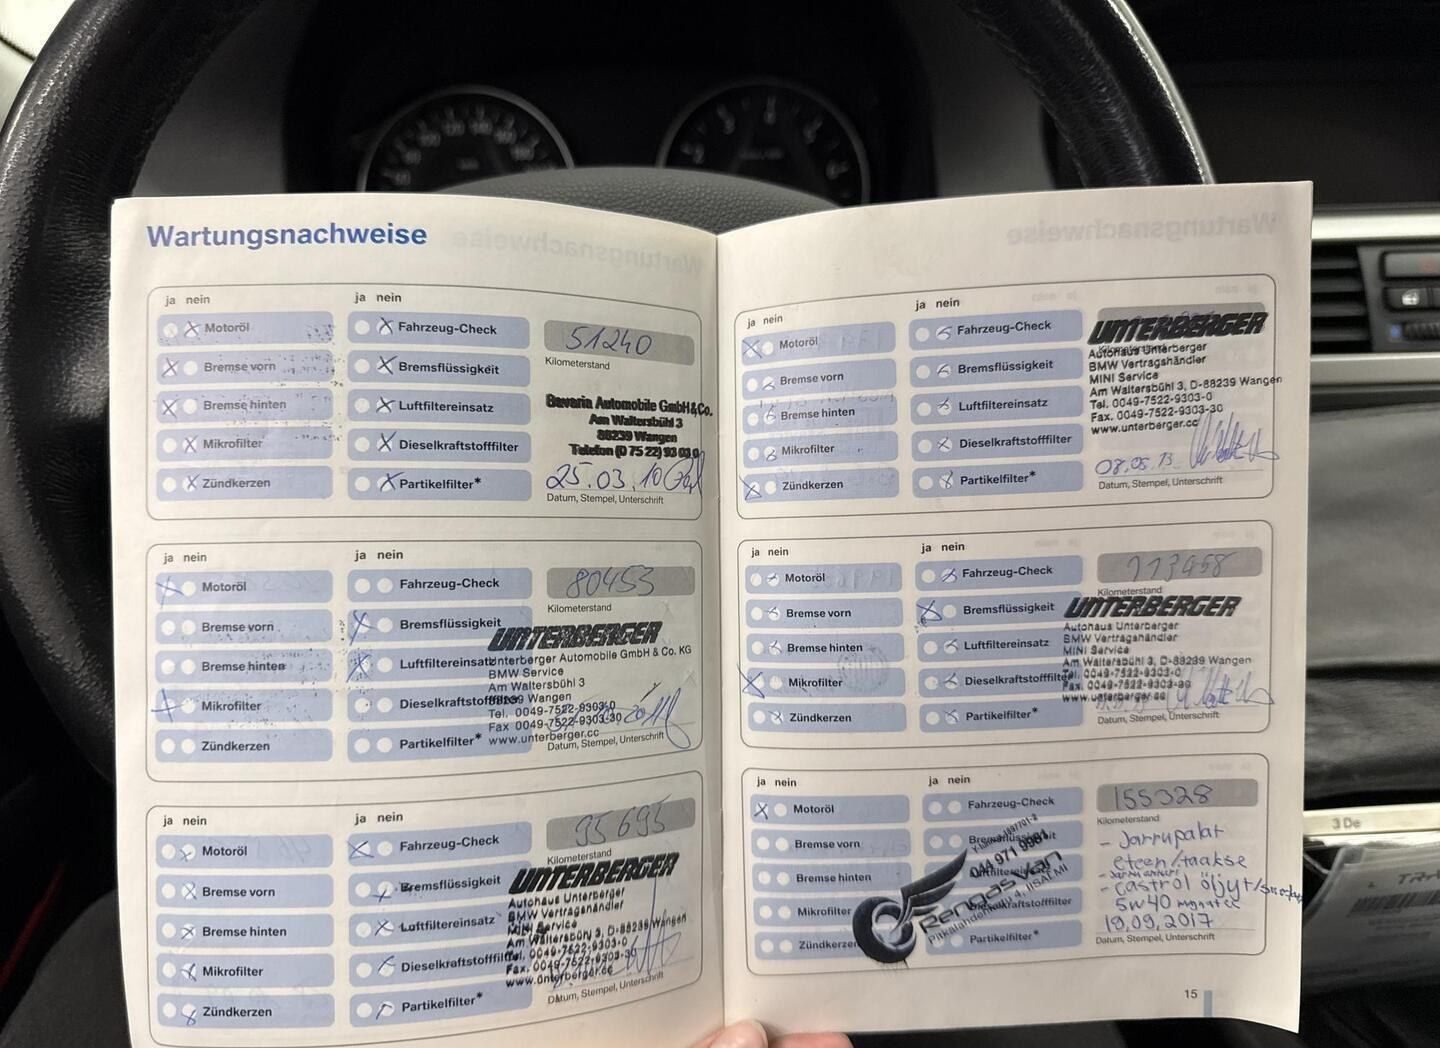 Wartungsnachweise
ja nein
Motoröl
Bremse vorn
Bremse hinten
Mikrofilter
Zündkerzen
ja nein
Fahrzeug-Check
Bremsflüssigkeit
Luftfiltereinsatz
Dieselkraftstofffilter
Partikelfilter*
51240
Kilometerstand
Bavaria Automobile GmbH & Co.
Am Waltersbühl 3
88239 Wangen
Telefon (0 75 22) 93 03 0
25.03.10
Datum, Stempel, Unterschrift
ja nein
Motoröl
Bremse vorn
Bremse hinten
Mikrofilter
Zündkerzen
ja nein
Fahrzeug-Check
Bremsflüssigkeit
Luftfiltereinsatz
Dieselkraftstofffilter
Partikelfilter*
80453
Kilometerstand
UNTERBERGER
Unterberger Automobile GmbH & Co. KG
BMW Service
Am Waltersbühl 3
88239 Wangen
Tel. 0049-7522-9303-0
Fax 0049-7522-9303-30
www.unterberger.cc
Datum, Stempel, Unterschrift
ja nein
Motoröl
Bremse vorn
Bremse hinten
Mikrofilter
Zündkerzen
ja nein
Fahrzeug-Check
Bremsflüssigkeit
Luftfiltereinsatz
Dieselkraftstofffilter
Partikelfilter*
95695
Kilometerstand
UNTERBERGER
Autohaus Unterberger
BMW Vertragshändler
MINI Service
Am Waltersbühl 3, D-88239 Wangen
Tel. 0049-7522-9303-0
Fax. 0049-7522-9303-30
www.unterberger.cc
Datum, Stempel, Unterschrift
ja nein
Motoröl
Bremse vorn
Bremse hinten
Mikrofilter
Zündkerzen
ja nein
Fahrzeug-Check
Bremsflüssigkeit
Luftfiltereinsatz
Dieselkraftstofffilter
Partikelfilter*
UNTERBERGER
Kilometerstand
Autohaus Unterberger
BMW Vertragshändler
MINI Service
Am Waltersbühl 3, D-88239 Wangen
Tel. 0049-7522-9303-0
Fax. 0049-7522-9303-30
www.unterberger.cc
08.08.13
Datum, Stempel, Unterschrift
ja nein
Motoröl
Bremse vorn
Bremse hinten
Mikrofilter
Zündkerzen
ja nein
Fahrzeug-Check
Bremsflüssigkeit
Luftfiltereinsatz
Dieselkraftstofffilter
Partikelfilter*
113458
Kilometerstand
UNTERBERGER
Autohaus Unterberger
BMW Vertragshändler
MINI Service
Am Waltersbühl 3, D-88239 Wangen
Tel. 0049-7522-9303-0
Fax. 0049-7522-9303-30
www.unterberger.cc
Datum, Stempel, Unterschrift
ja nein
Motoröl
Bremse vorn
Bremse hinten
Mikrofilter
Zündkerzen
ja nein
Fahrzeug-Check
Bremsflüssigkeit
Luftfiltereinsatz
Dieselkraftstofffilter
Partikelfilter*
044 971 9981
RengasVan
IISALMI
155328
Kilometerstand
- Jarrupalat
eteen/taakse
- Castrol öljyt/
5w40
19.09.2017
Datum, Stempel, Unterschrift
15
3 De